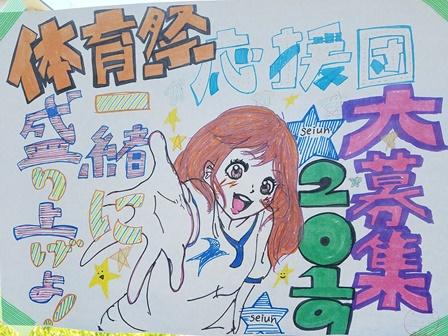 体育祭
応援団
大募集
2019
seiun
seiun
一緒に
盛り上げよ!